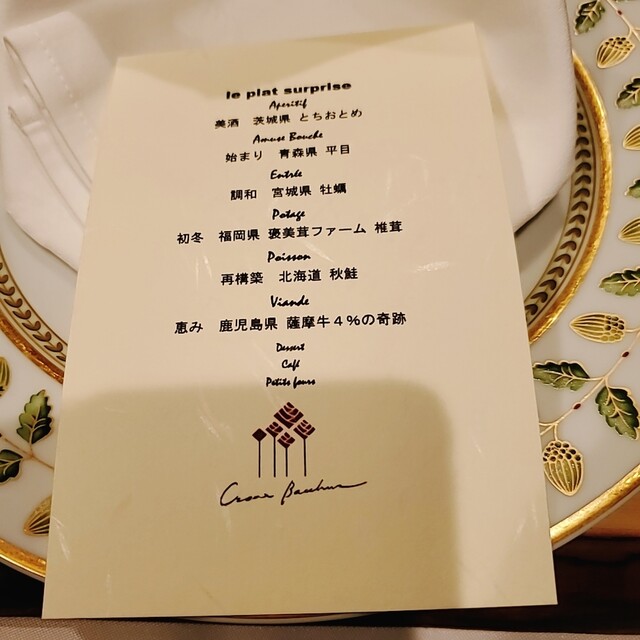 le plat surprise
Aperitif
美酒 茨城県 とちおとめ
Amuse Bouche
始まり 青森県 平目
Entrée
調和 宮城県 牡蠣
Potage
初冬 福岡県 褒美茸ファーム 椎茸
Poisson
再構築 北海道 秋鮭
Viande
恵み 鹿児島県 薩摩牛4%の奇跡
Dessert
Café
Petits fours
Bacchus